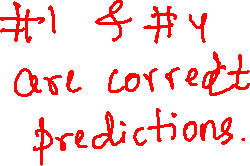 #1 & #4
are correct
predictions.